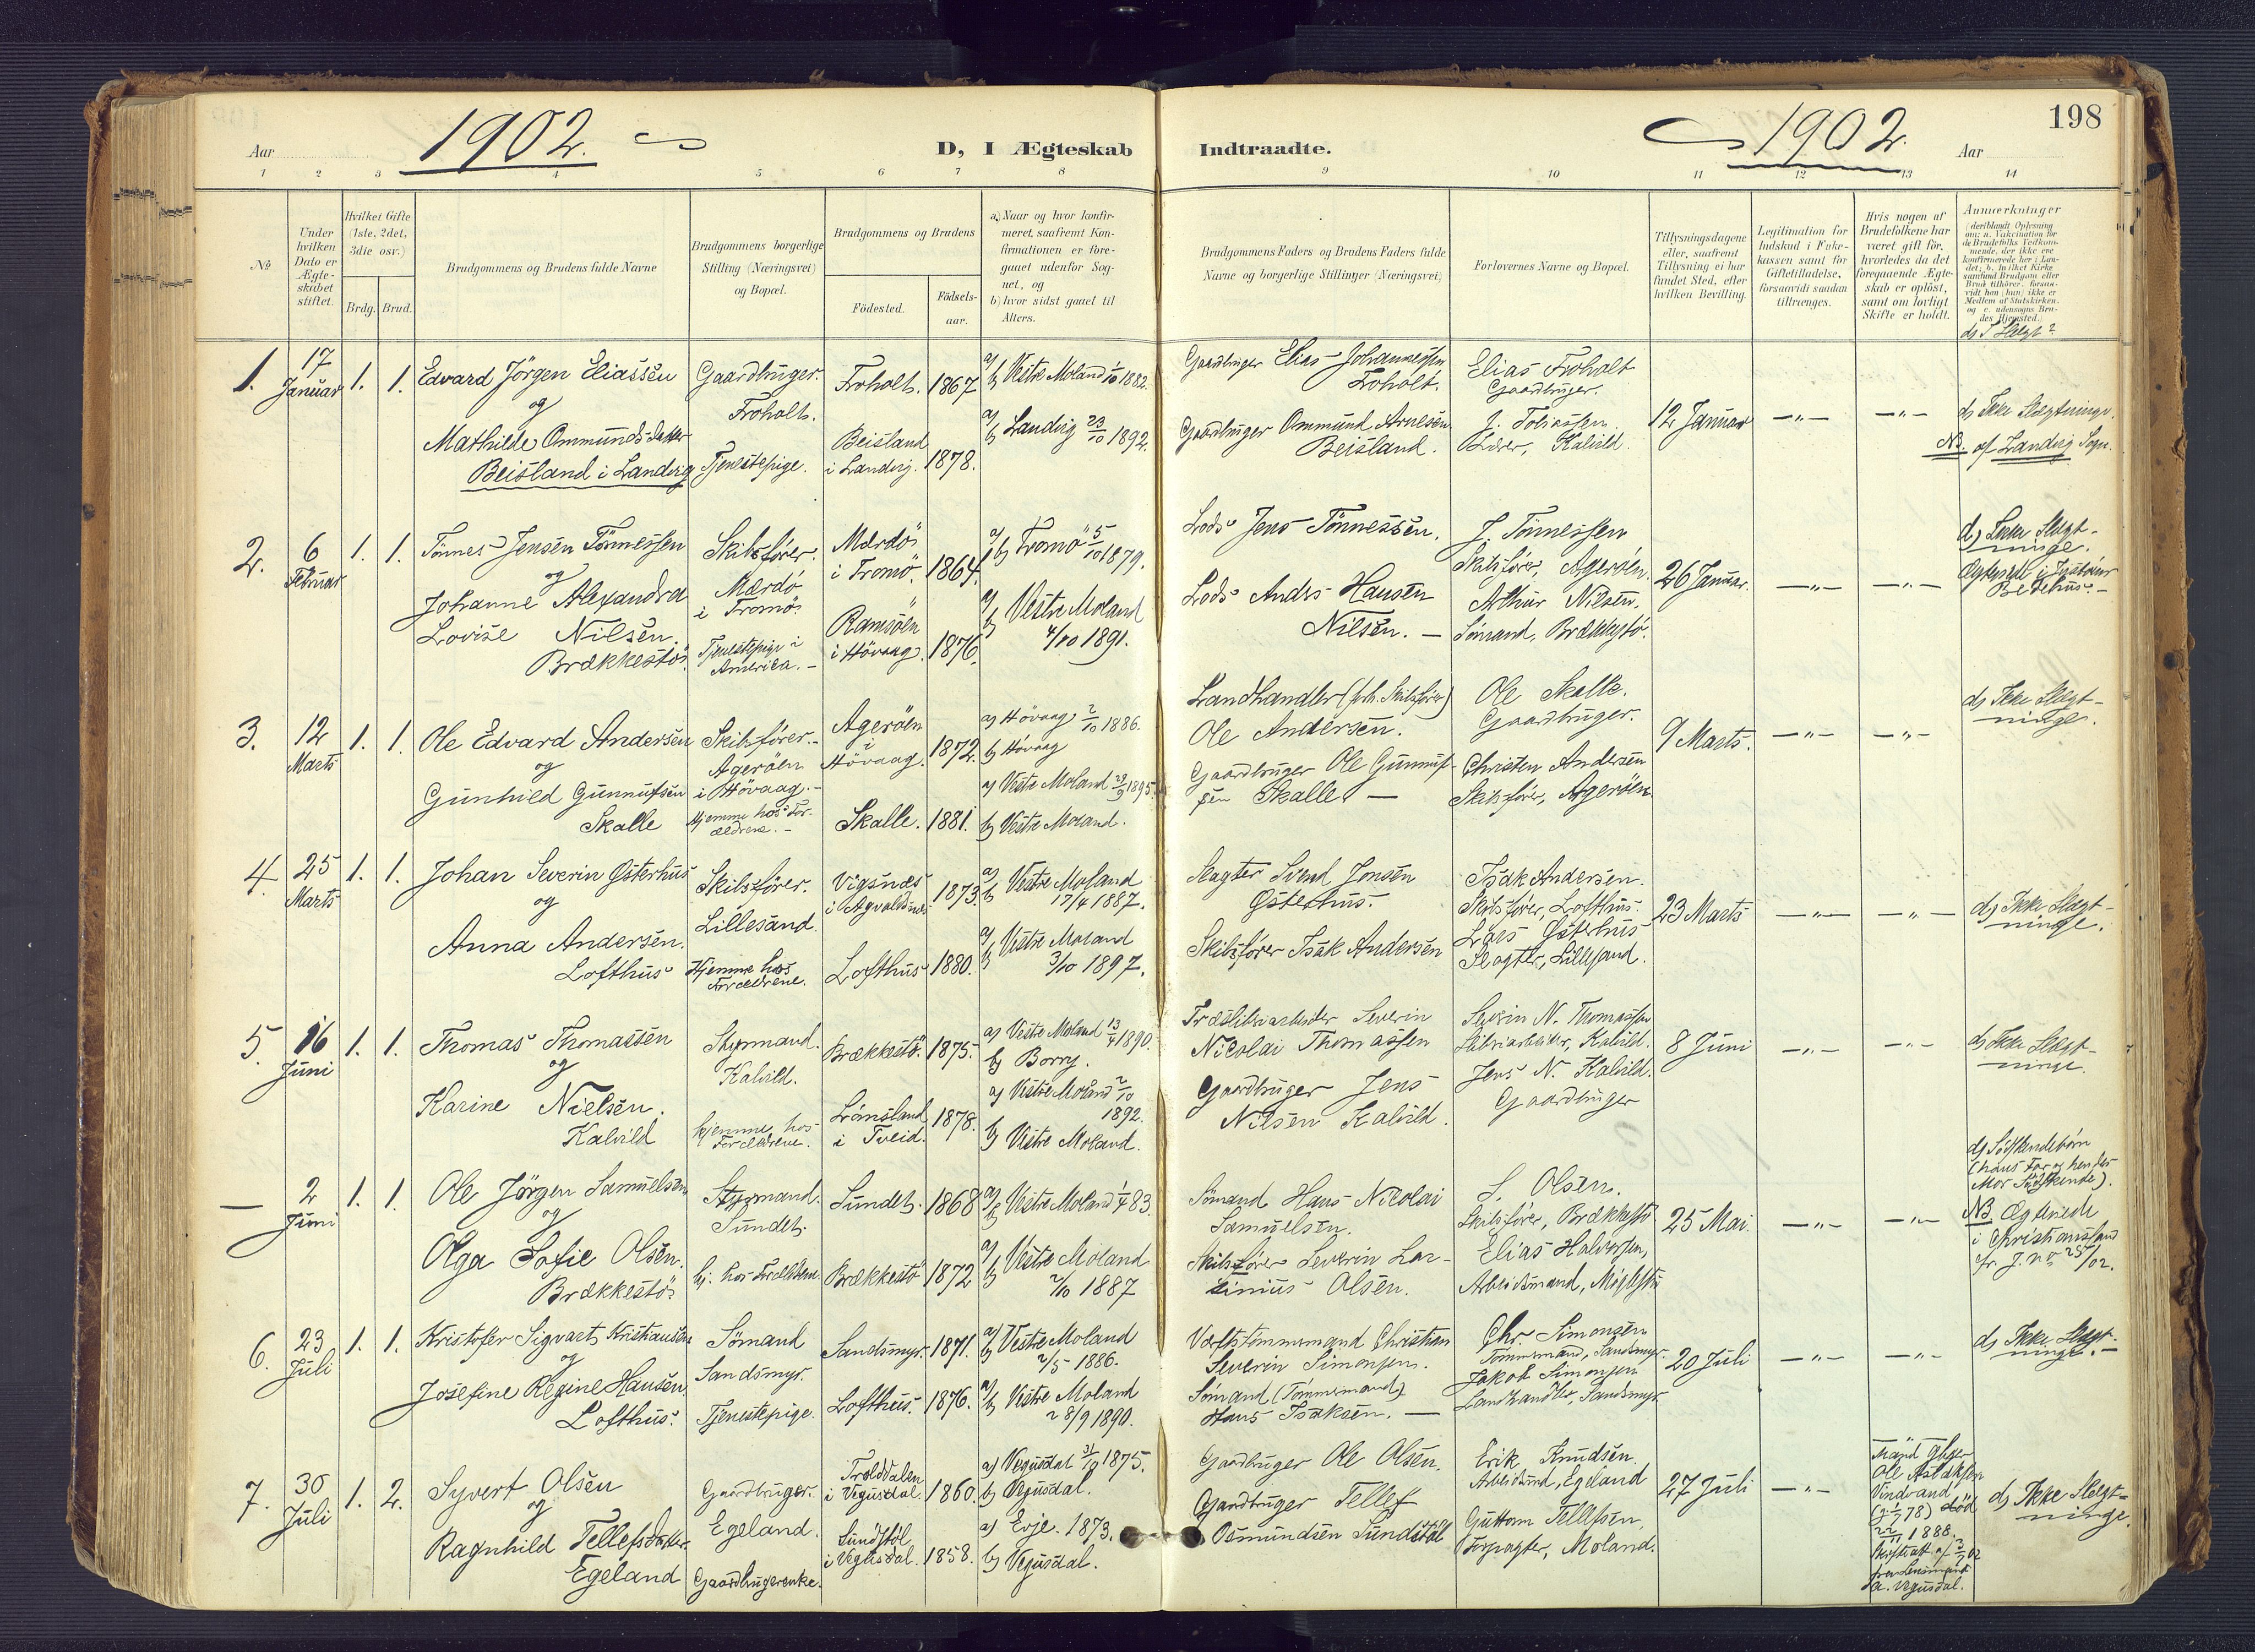 198
Aar 1902. D, I Ægteskab Indtraadte. 1902. Aar
1 2 3 4 5 6 7 8 9 10 11 12 13 14
No
Under
hvilken
Dato er
Ægte-
skabet
stiftet.
Hvilket Gifte
(1ste, 2det,
3die osv.)
Brdg. Brud.
Brudgommens og Brudens fulde Navne
Brudgommens borgerlige
Stilling (Næringsvei)
og Bopæl.
Brudgommens og Brudens
Födested.
Födsels-
aar.
a) Naar og hvor konfir-
meret, saafremt Kon-
firmationen er fore-
gaaet udenfor Sog-
net, og
b) hvor sidst gaaet til
Alters.
Brudgommens Faders og Brudens Faders fulde
Navne og borgerlige Stillinger (Næringsvei)
Forlovernes Navne og Bopæl.
Tillysningsdagene
eller, saafremt
Tillysning ei har
fundet Sted, efter
hvilken Bevilling.
Legitimation for
Indskud i Enke-
kassen samt for
Giftetilladelse,
forsaavidt saadan
tiltrænges.
Hvis nogen af
Brudefolkene har
været gift för,
hvorledes da det
foregaaende Ægte-
skab er oplöst,
samt om lovligt
Skifte er holdt.
Anmærkninger
(deriblandt Oplysning
om: a. Vakcination for
de Brudefolks Vedkom-
mende, der ikke ere
konfirmerede her i Lan-
det; b. hvilket Kirke-
samfund Brudgom eller
Brud tilhörer, forsaa-
vidt han (hun) ikke er
Medlem af Statskirken,
og c. udensogns Bru-
des Hjemsted.)
d) I Slægt?
1.
17
Januar
1. 1.
Edvard Jörgen Eliassen
og
Mathilde Ommundsdatter
Beisland i Landvig
Gaardbruger.
Froholt.
Tjenestepige.
Froholt.
Beisland
i Landvig.
1867
1878.
a)
b) Vestre Moland 1/10 1882.
a)
b) Landvig 23/10 1892.
Gaardbruger Elias Johannessen
Froholt.
Gaardbruger Ommund Arnesen
Beisland.
Elias Froholt
Gaardbruger.
J. Tobiassen
Lærer, Kalvild.
12 Januar
d) Ikke Slægtninge.
NB. af Landvig Sogn.
2.
6
Februar
1. 1.
Tönnes Jensen Tönnessen
og
Johanne Alexandra
Lovise Nilsen.
Brækkestö.
Skibsförer.
Mærdö
i Tromö
Tjenestepige i
America.
Mærdö
i Tromö.
Ramsöen
i Hövaag.
1864.
1876.
a)
b) Tromö 5/10 1879.
a)
b) Vestre Moland
4/10 1891.
Lods Jens Tönnessen.
Lods Anders Hansen
Nilsen. —
J. Tönnessen
Skibsförer, Ageröen.
Arthur Nilsen,
Sömand, Brækkestö.
26 Januar.
d) Ikke Slægt-
ninge.
Bedehus.
3.
12
Marts
1. 1.
Ole Edvard Andersen
og
Gunhild Gunnufsen
Skalle
Skibsförer.
Ageröen
i Hövaag.
Hjemme hos For-
ældrene.
Ageröen
i
Hövaag.
Skalle.
1872.
1881.
a) Hövaag 2/10 1886.
b) Hövaag
a) Vestre Moland 29/9 1895.
b) Vestre Moland.
Landhandler (forh. Skibsförer)
Ole Andersen.
Gaardbruger Ole Gunnuf-
sen Skalle. —
Ole Skalle.
Gaardbruger.
Christen Andersen
Skibsförer, Ageröen
9 Marts.
d) Ikke Slægt-
ninge.
4.
25
Marts
1. 1.
Johan Severin Østerhus
og
Anna Andersen.
Lofthus
Skibsförer.
Lillesand.
Hjemme hos
Forældrene.
Vigsnes
i Agvaldsnes
Lofthus
1873.
1880.
a)
b) Vestre Moland
17/4 1887.
a)
b) Vestre Moland
3/10 1897.
Slagter Svend Jonsen
Østerhus.
Skibsförer Isak Andersen
Isak Andersen.
Skibsförer, Lofthus.
Lars Østerhus
Slagter, Lillesand.
23 Marts
d) Ikke Slægt-
ninge.
5.
16
Juni
1. 1.
Thomas Thomassen
og
Karine Nielsen.
Kalvild
Styrmand.
Kalvild.
Hjemme hos
Forældrene.
Brækkestö.
Lönsland
i Tveid.
1875.
1878.
a) Vestre Moland 13/4 1890.
b) Borry.
a) Vestre Moland 2/10
1892.
b) Vestre Moland.
Træslibriarbeider Severin
Nicolai Thomassen
Gaardbruger Jens
Nilsen Kalvild.
Severin N. Thomassen
Slibriarbeider, Kalvild.
Jens N. Kalvild.
Gaardbruger
8 Juni
d) Ikke Slægt-
ninge.
—
2
Juni
1. 1.
Ole Jörgen Samuelsen
og
Olga Sofie Olsen.
Brækkestö
Styrmand.
Sundet.
hj. hos Forældrene
Sundet.
Brækkestö
1868
1872
a)
b) Vestre Moland 1/4 83.
a)
b) Vestre Moland
2/10 1887
Sömand Hans Nicolai
Samuelsen.
Skibsförer Severin Lar-
sinius Olsen.
S. Olsen.
Skibsförer, Brækkestö
Elias Halvorsen,
Arbeidsmand, Möglestu
25 Mai.
d) Södskendebörn
(hans Far og hendes
Mor Södskende).
NB Ægteviede
i Christianssand
cfr. J. No 25/02.
6.
23
Juli
1. 1.
Kristofer Sigvart Kristiansen
og
Josefine Regine Hansen
Lofthus.
Sömand
Sandsmyr.
Tjenestepige.
Sandsmyr.
Lofthus.
1871.
1876.
a)
b) Vestre Moland
2/5 1886.
a)
b) Vestre Moland
28/9 1890.
Værftstömmermand Christian
Severin Simonsen.
Sömand (Tömmermand)
Hans Isaksen. —
Chr. Simonsen
Tömmermand, Sandsmyr.
Jakob Simonsen
Landhandler, Sandsmyr.
20 Juli
d) Ikke Slægt-
ninge.
7.
30
Juli
1. 2.
Syvert Olsen
og
Ragnhild Tellefsdatter
Egeland
Gaardbruger.
Egeland.
Gaardbrugerenke.
Trolddalen
i Vegusdal.
Sundstöl
i Vegusdal.
1860.
1858.
a) Vegusdal 31/10 1875.
b) Vegusdal.
a) Evje. 1873.
b) Vegusdal.
Gaardbruger Ole Olsen.
Gaardbruger Tellef
Osmundsen Sundstöl
Erik Knudsen.
Arbeidsmd, Egeland
Guttorm Tellefsen,
Forpagter, Moland.
27 Juli
Ole Aslaksen
Vindrand
død
1888.
Skifteatt. af
fra Lensmand
a. Vegusdal.
d) Ikke Slægt-
ninge.